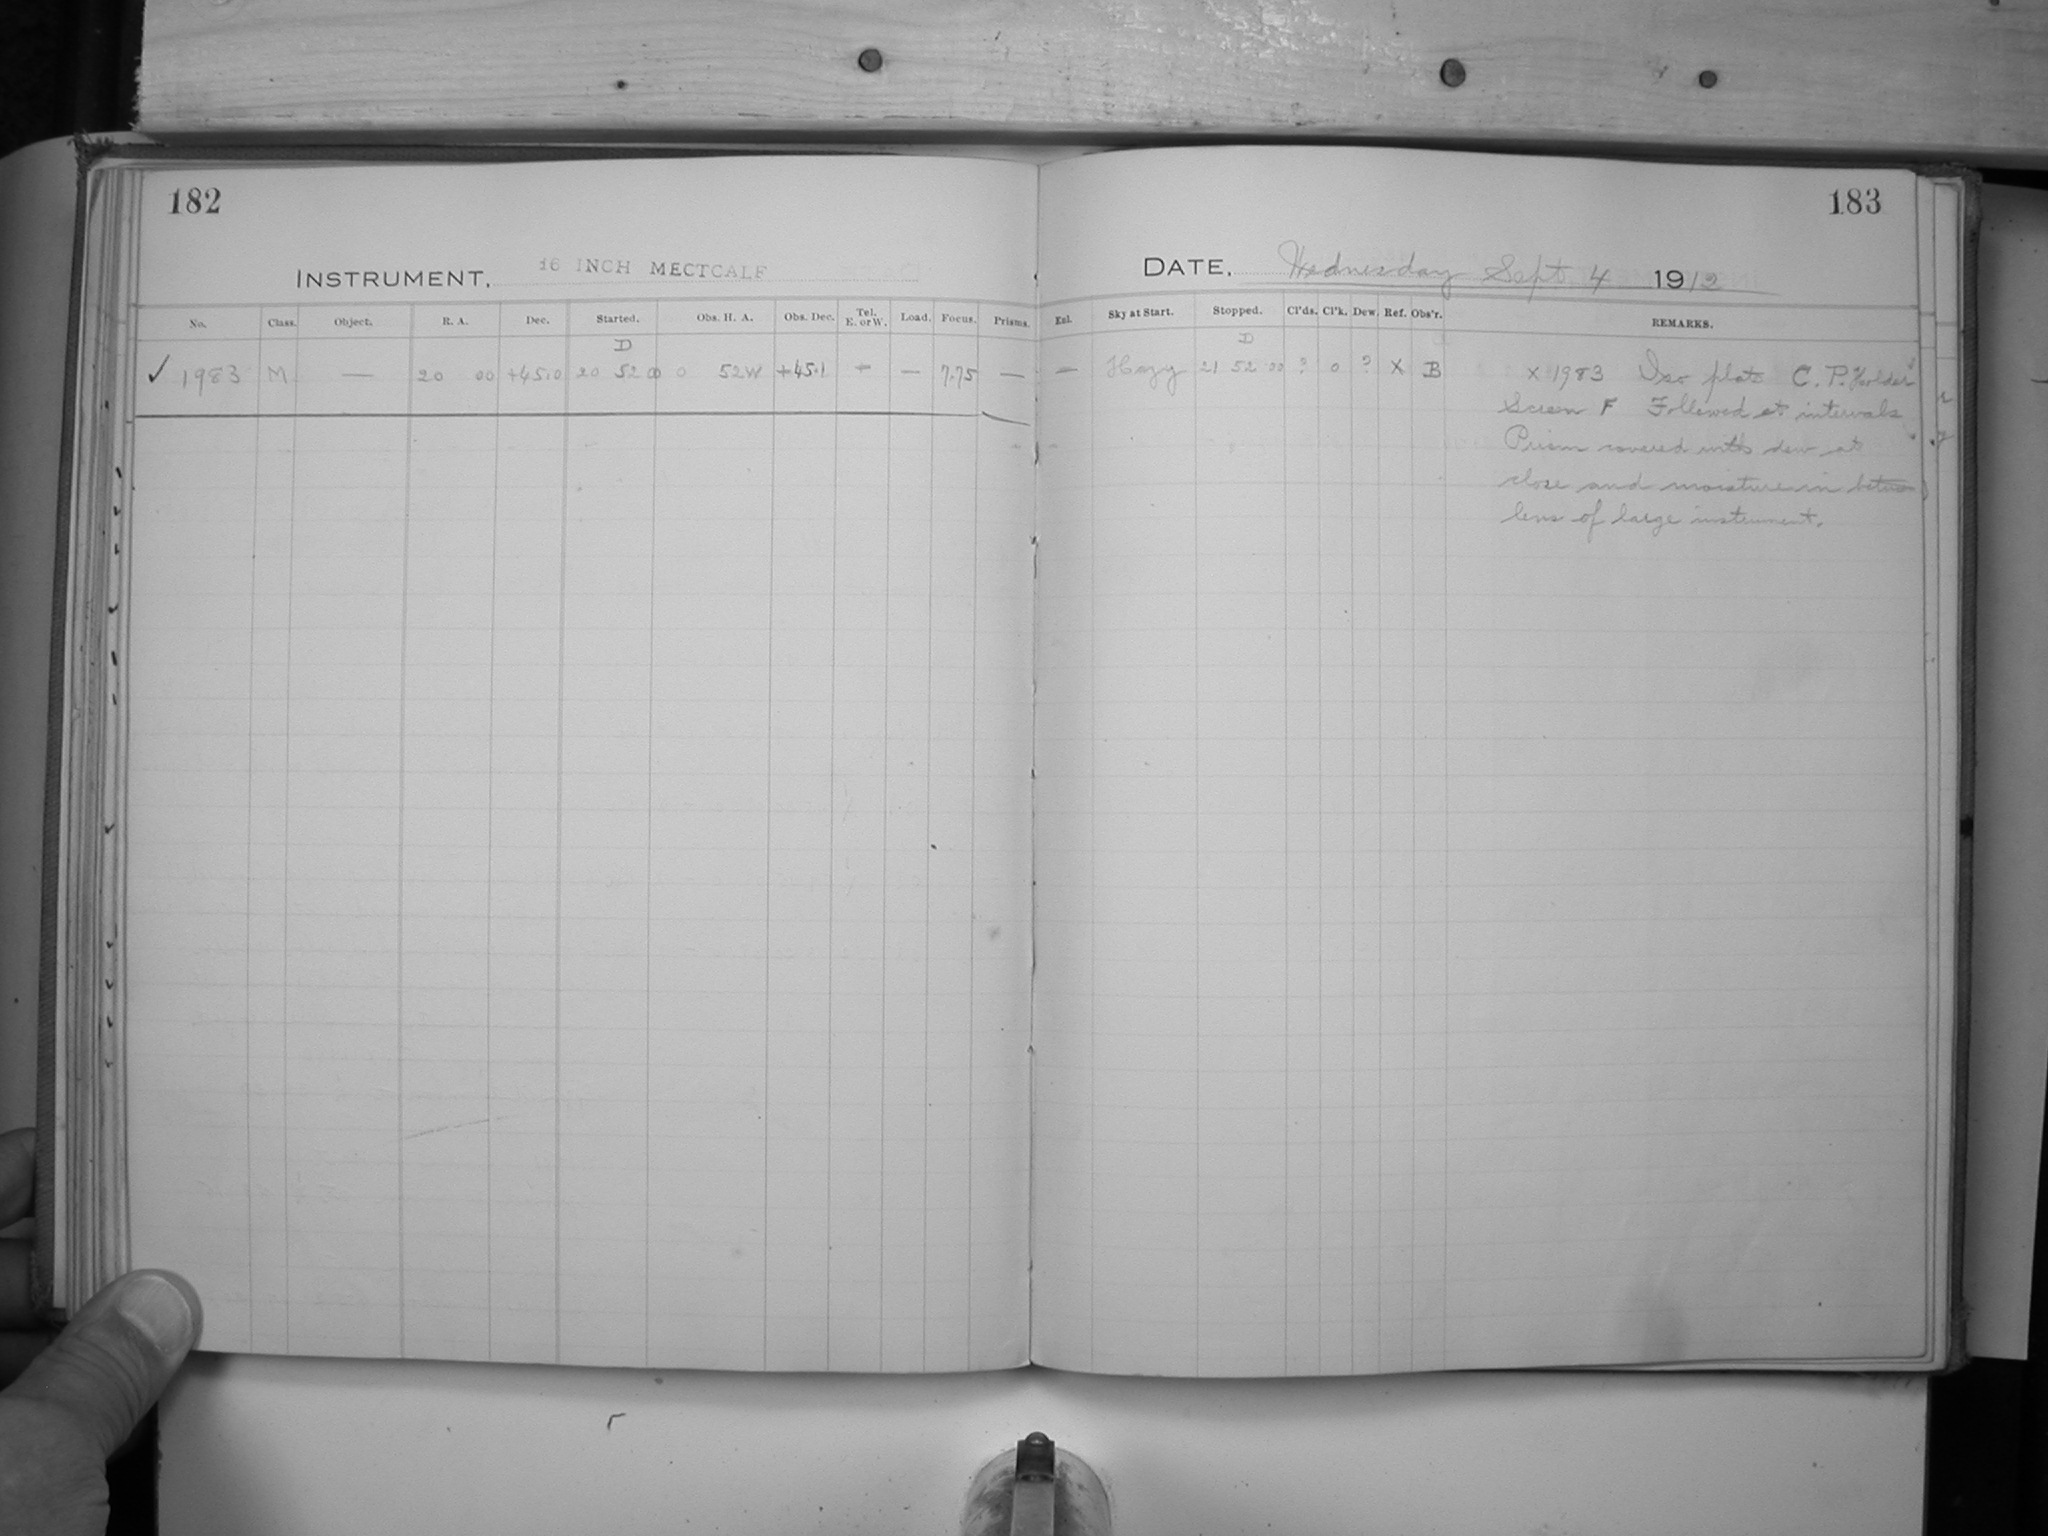 182
INSTRUMENT. 16 INCH MECTCALF
No. Class. Object. R. A. Dec. Started. Obs. H. A. Obs. Dec. Tel. E. or W. Load. Focus. Prisms.
D
✓ 1983 M — 20 00 +45.0 20 52 00 0 52W +45.1 — — 7.75 —
183
DATE. Wednesday Sept 4 1912
Exl. Sky at Start. Stopped. Cl'ds. Cl'k. Dew. Ref. Obs'r. REMARKS.
D
— Hazy 21 52 00 ? 0 ? X B x 1983 Iso plate C. P. Holder
Screen F Followed at intervals
Prism covered with dew at
close and moisture in between
lens of large instrument.